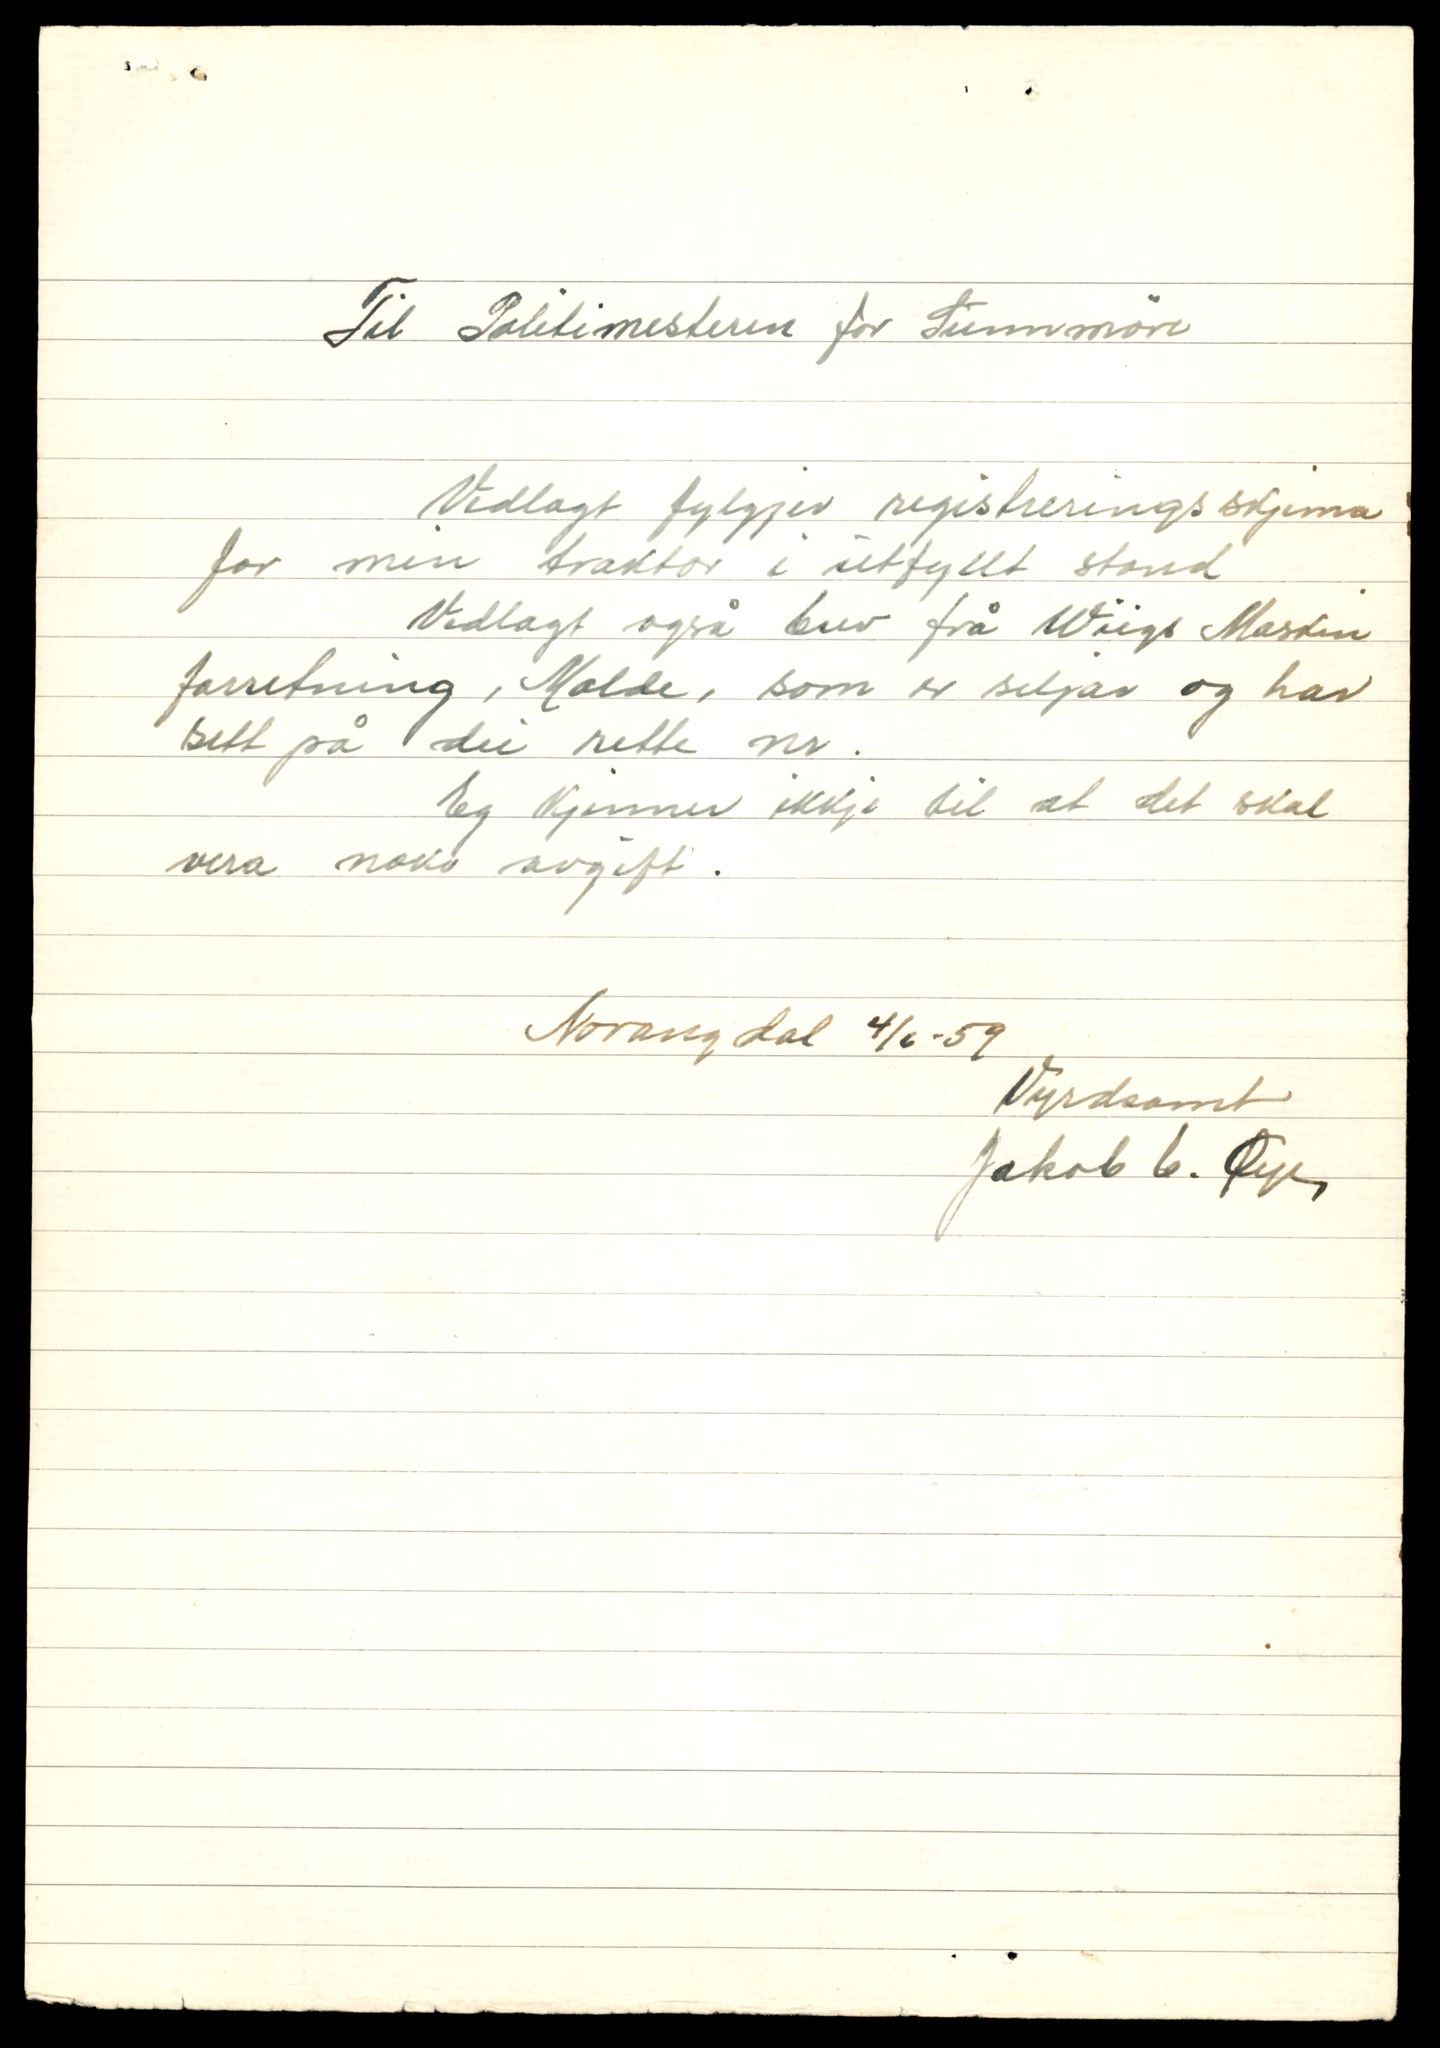 Til Politimesteren for Sunnmöre
Vedlagt fylgjer registreringsskjema
for min traktor i utfyllt stand
Vedlagt også brev frå Wiigs Maskin
forretning, Molde, som er seljar og har
sett på dei rette nr.
Eg kjenner ikkje til at det skal
vera noko avgift.
Norangdal 4/6-59
Vyrdsamt
Jakob C. Øye,